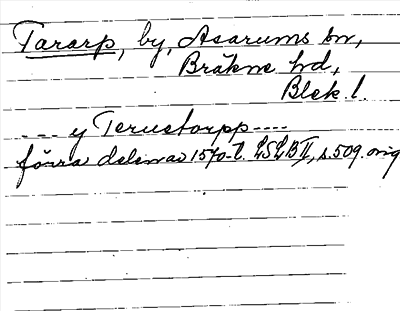 Tararp, by, Asarums sn,
Bräkne hd,
Blek l.
--- y Teruetorpp ----
förra delen av 1570-t. LSLB II, s. 509. orig